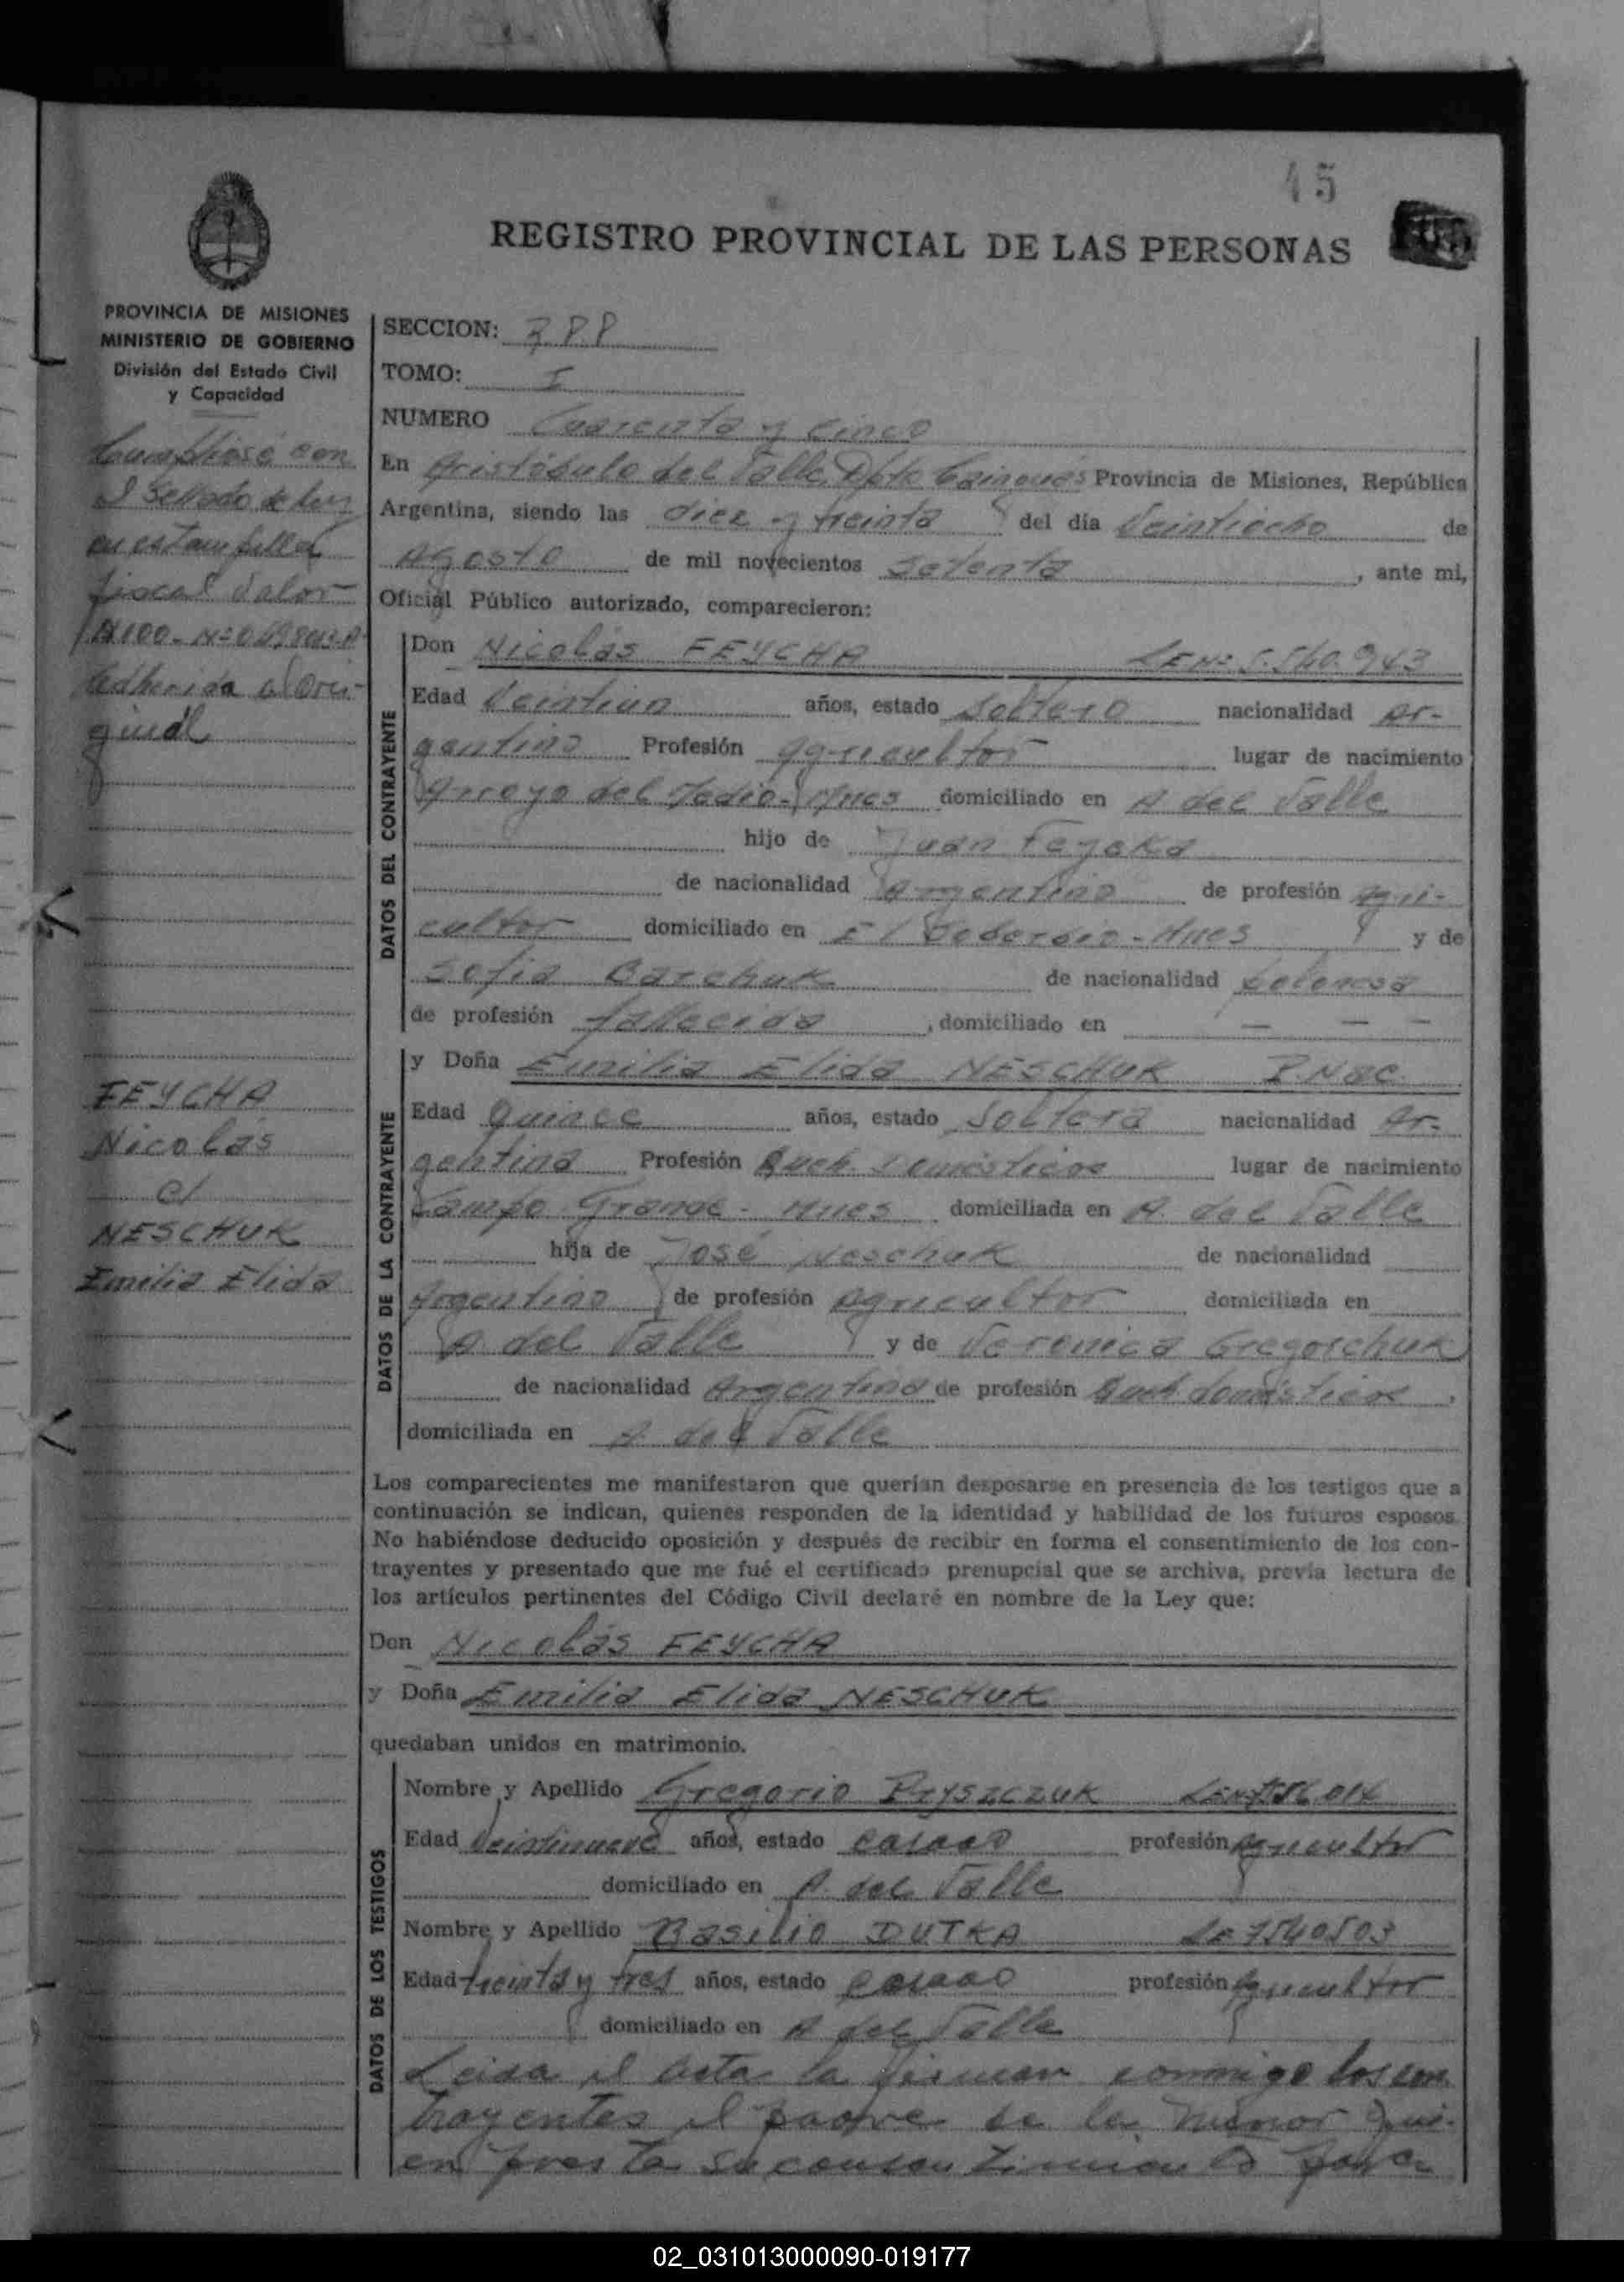 45
REGISTRO PROVINCIAL DE LAS PERSONAS
PROVINCIA DE MISIONES
MINISTERIO DE GOBIERNO
División del Estado Civil
y Capacidad
Cumplióse con
el Sellado de ley
en estampilla
fiscal Valor
Adherida al ori-
ginal
FEYCHA
Nicolás
c/
NESCHUK
Emilia Elida
SECCION:
TOMO: I
NUMERO Cuarenta y cinco
En Aristóbulo del Valle, Dpto Cainguás Provincia de Misiones, República
Argentina, siendo las diez y treinta del día Veintiocho de
Agosto de mil novecientos setenta, ante mi,
Oficial Público autorizado, comparecieron:
DATOS DEL CONTRAYENTE
Don Nicolás FEYCHA LE Nº 5.540.943
Edad Veintiun años, estado soltero nacionalidad Ar-
gentino Profesión Agricultor lugar de nacimiento
Arroyo del Medio - Mnes domiciliado en A. del Valle
hijo de Juan Feycka
de nacionalidad Argentino de profesión Agri-
cultor domiciliado en El Soberbio - Mnes y de
Sofia Barchuk de nacionalidad polonesa
de profesión fallecida, domiciliado en — — —
DATOS DE LA CONTRAYENTE
y Doña Emilia Elida NESCHUK
Edad Quince años, estado Soltera nacionalidad Ar-
gentina Profesión Queh. domésticos lugar de nacimiento
Campo Grande - Mnes domiciliada en A. del Valle
hija de José Neschuk de nacionalidad
Argentino de profesión Agricultor domiciliada en
A. del Valle y de Veronica Gregorchuk
de nacionalidad Argentina de profesión Queh. domésticos,
domiciliada en A. del Valle
Los comparecientes me manifestaron que querían desposarse en presencia de los testigos que a
continuación se indican, quienes responden de la identidad y habilidad de los futuros esposos.
No habiéndose deducido oposición y después de recibir en forma el consentimiento de los con-
trayentes y presentado que me fué el certificado prenupcial que se archiva, previa lectura de
los artículos pertinentes del Código Civil declaré en nombre de la Ley que:
Don Nicolás FEYCHA
y Doña Emilia Elida NESCHUK
quedaban unidos en matrimonio.
DATOS DE LOS TESTIGOS
Nombre y Apellido Gregorio PRYSZCZUK
Edad Veintinueve años, estado casado profesión Agricultor
domiciliado en A. del Valle
Nombre y Apellido Basilio DUTKA LE 7540503
Edad treinta y tres años, estado casado profesión Agricultor
domiciliado en A del Valle
Leida el Acta la firman conmigo los con-
trayentes el padre de la menor qui-
en presta su consentimiento para
02_031013000090-019177